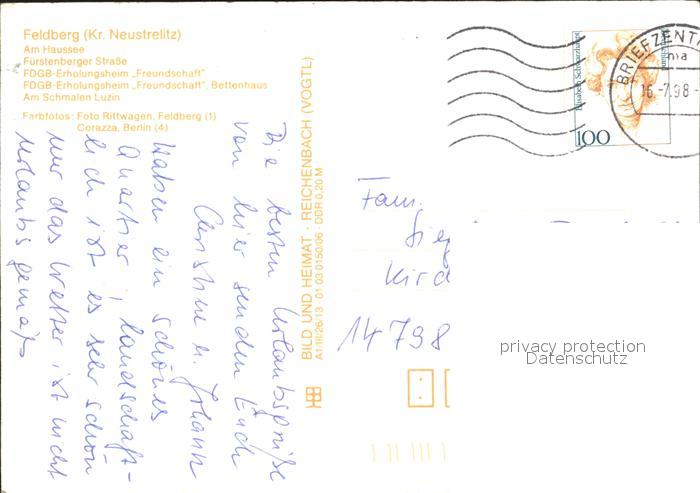 Feldberg (Kr. Neustrelitz)
Am Haussee
Fürstenberger Straße
FDGB-Erholungsheim „Freundschaft"
FDGB-Erholungsheim „Freundschaft", Bettenhaus
Am Schmalen Luzin
Farbfotos: Foto Rittwagen, Feldberg (1)
Corazza, Berlin (4)
Die besten Urlaubsgrüße
von hier senden Euch
Christine u. Johann
Haben ein schönes
Quartier, landschaft-
lich ist es sehr schön
nur das Wetter ist nicht
urlaubsgemäß
BILD UND HEIMAT · REICHENBACH (VOGTL)
A1/III/26/13 01 03 0150/06 · DDR 0,20 M
Elisabeth Schwarzhaupt
100
BRIEFZENTR
16.-7.98-
Fam.
Kird
14798
privacy protection
Datenschutz